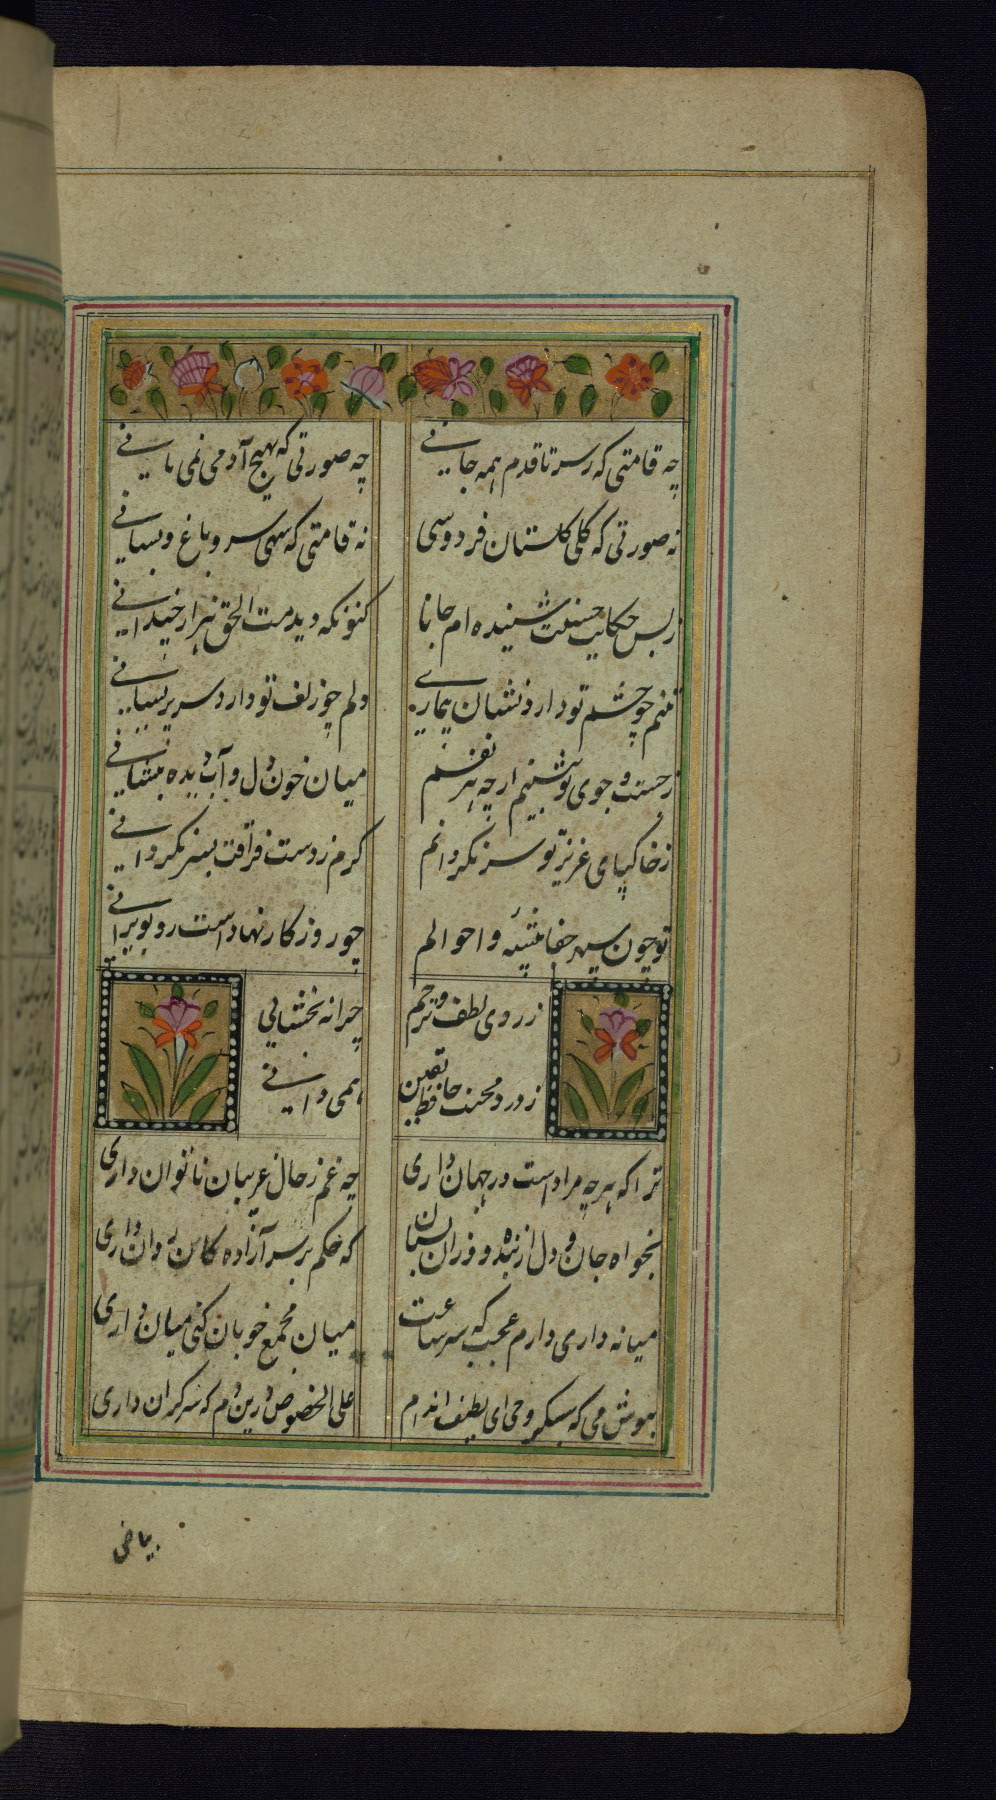 چه قامتی که ز سر تا قدم همه جانی
چه صورتی که بهیچ آدمی نمی مانی
نه صورتی که گلی گلستان فردوسی
نه قامتی که سهی سرو باغ و بستانی
ز بس حکایت حسنت شنیده ام جانا
کنونکه دیدمت الحق هزار چندانی
تنم چو چشم تو دارد نشان بیماری
دلم چو زلف تو دارد سر پریشانی
ز جست و جوی تو ننشینم ار چه هر نفسم
میان خون دل و آب دیده بنشانی
ز خاکپای عزیز تو سر نگردانم
گرم ز دست فراقت بسر بگردانی
تو چون سپهر جفا پیشه و احوالم
چو روزگار نهادست رو بویرانی
ز روی لطف و ترحم
چرا نه بخشایی
ز درد و محنت حافظ یقین
همی دانی
ترا که هرچه مرادست در جهان داری
چه غم ز حال غریبان ناتوان داری
بخواه جان و دل از بنده و روان بستان
که حکم بر سر آزاده گان روان داری
میانه داری و دارم عجب که هر ساعت
میان مجمع خوبان کنی میان داری
بنوش می که سبکروحی ای لطیف اندام
علی الخصوص درین دم که سر گران داری
بیاض